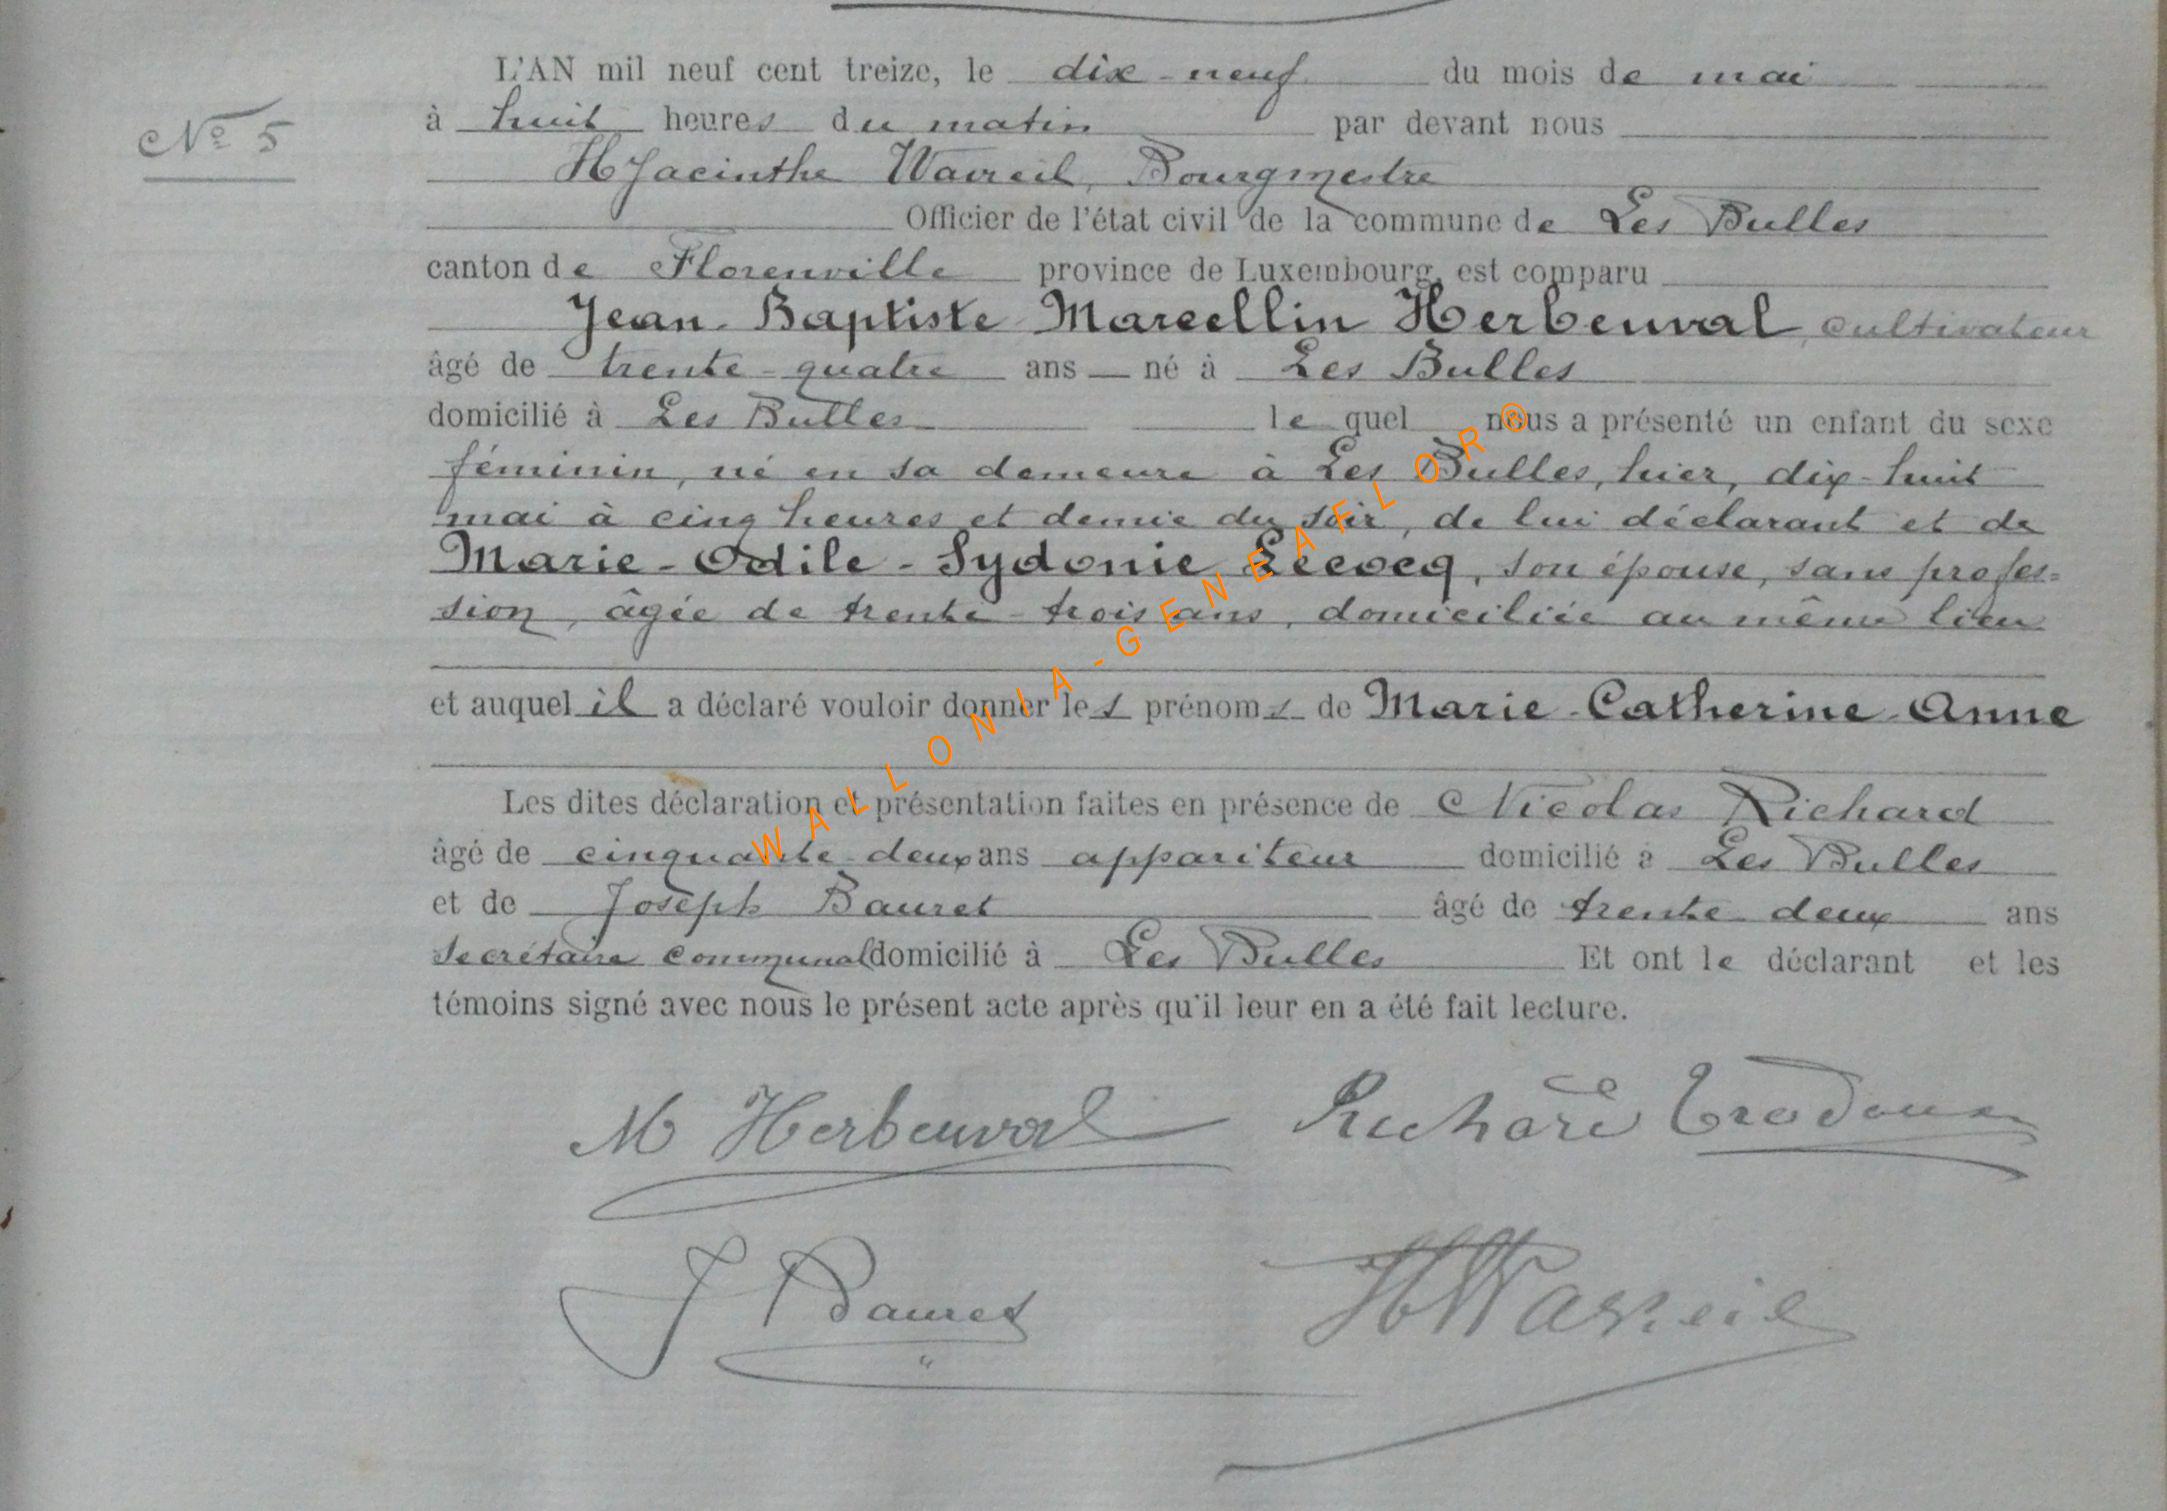 L'AN mil neuf cent treize, le dix-neuf du mois de mai
N° 5
à huit heures du matin par devant nous
HJacinthe Wavreil, Bourgmestre
Officier de l'état civil de la commune de Les Bulles
canton de Florenville province de Luxembourg, est comparu
Jean-Baptiste-Marcellin Herbeuval, cultivateur
âgé de trente-quatre ans né à Les Bulles
domicilié à Les Bulles le quel nous a présenté un enfant du sexe
féminin, né en sa demeure à Les Bulles, hier, dix-huit
mai à cinq heures et demie du soir, de lui déclarant et de
Marie-Odile-Sydonie Lecocq, son épouse, sans profes=
sion, âgée de trente-trois ans, domiciliée au même lieu
et auquel il a déclaré vouloir donner les prénoms de Marie-Catherine-Anne
Les dites déclaration et présentation faites en présence de Nicolas Richard
âgé de cinquante-deux ans appariteur domicilié à Les Bulles
et de Joseph Bauret âgé de trente-deux ans
secrétaire communal domicilié à Les Bulles Et ont le déclarant et les
témoins signé avec nous le présent acte après qu'il leur en a été fait lecture.
M Herbeuval Richard
J Bauret HWavreil
WALLONIA-GENEAFLOR®